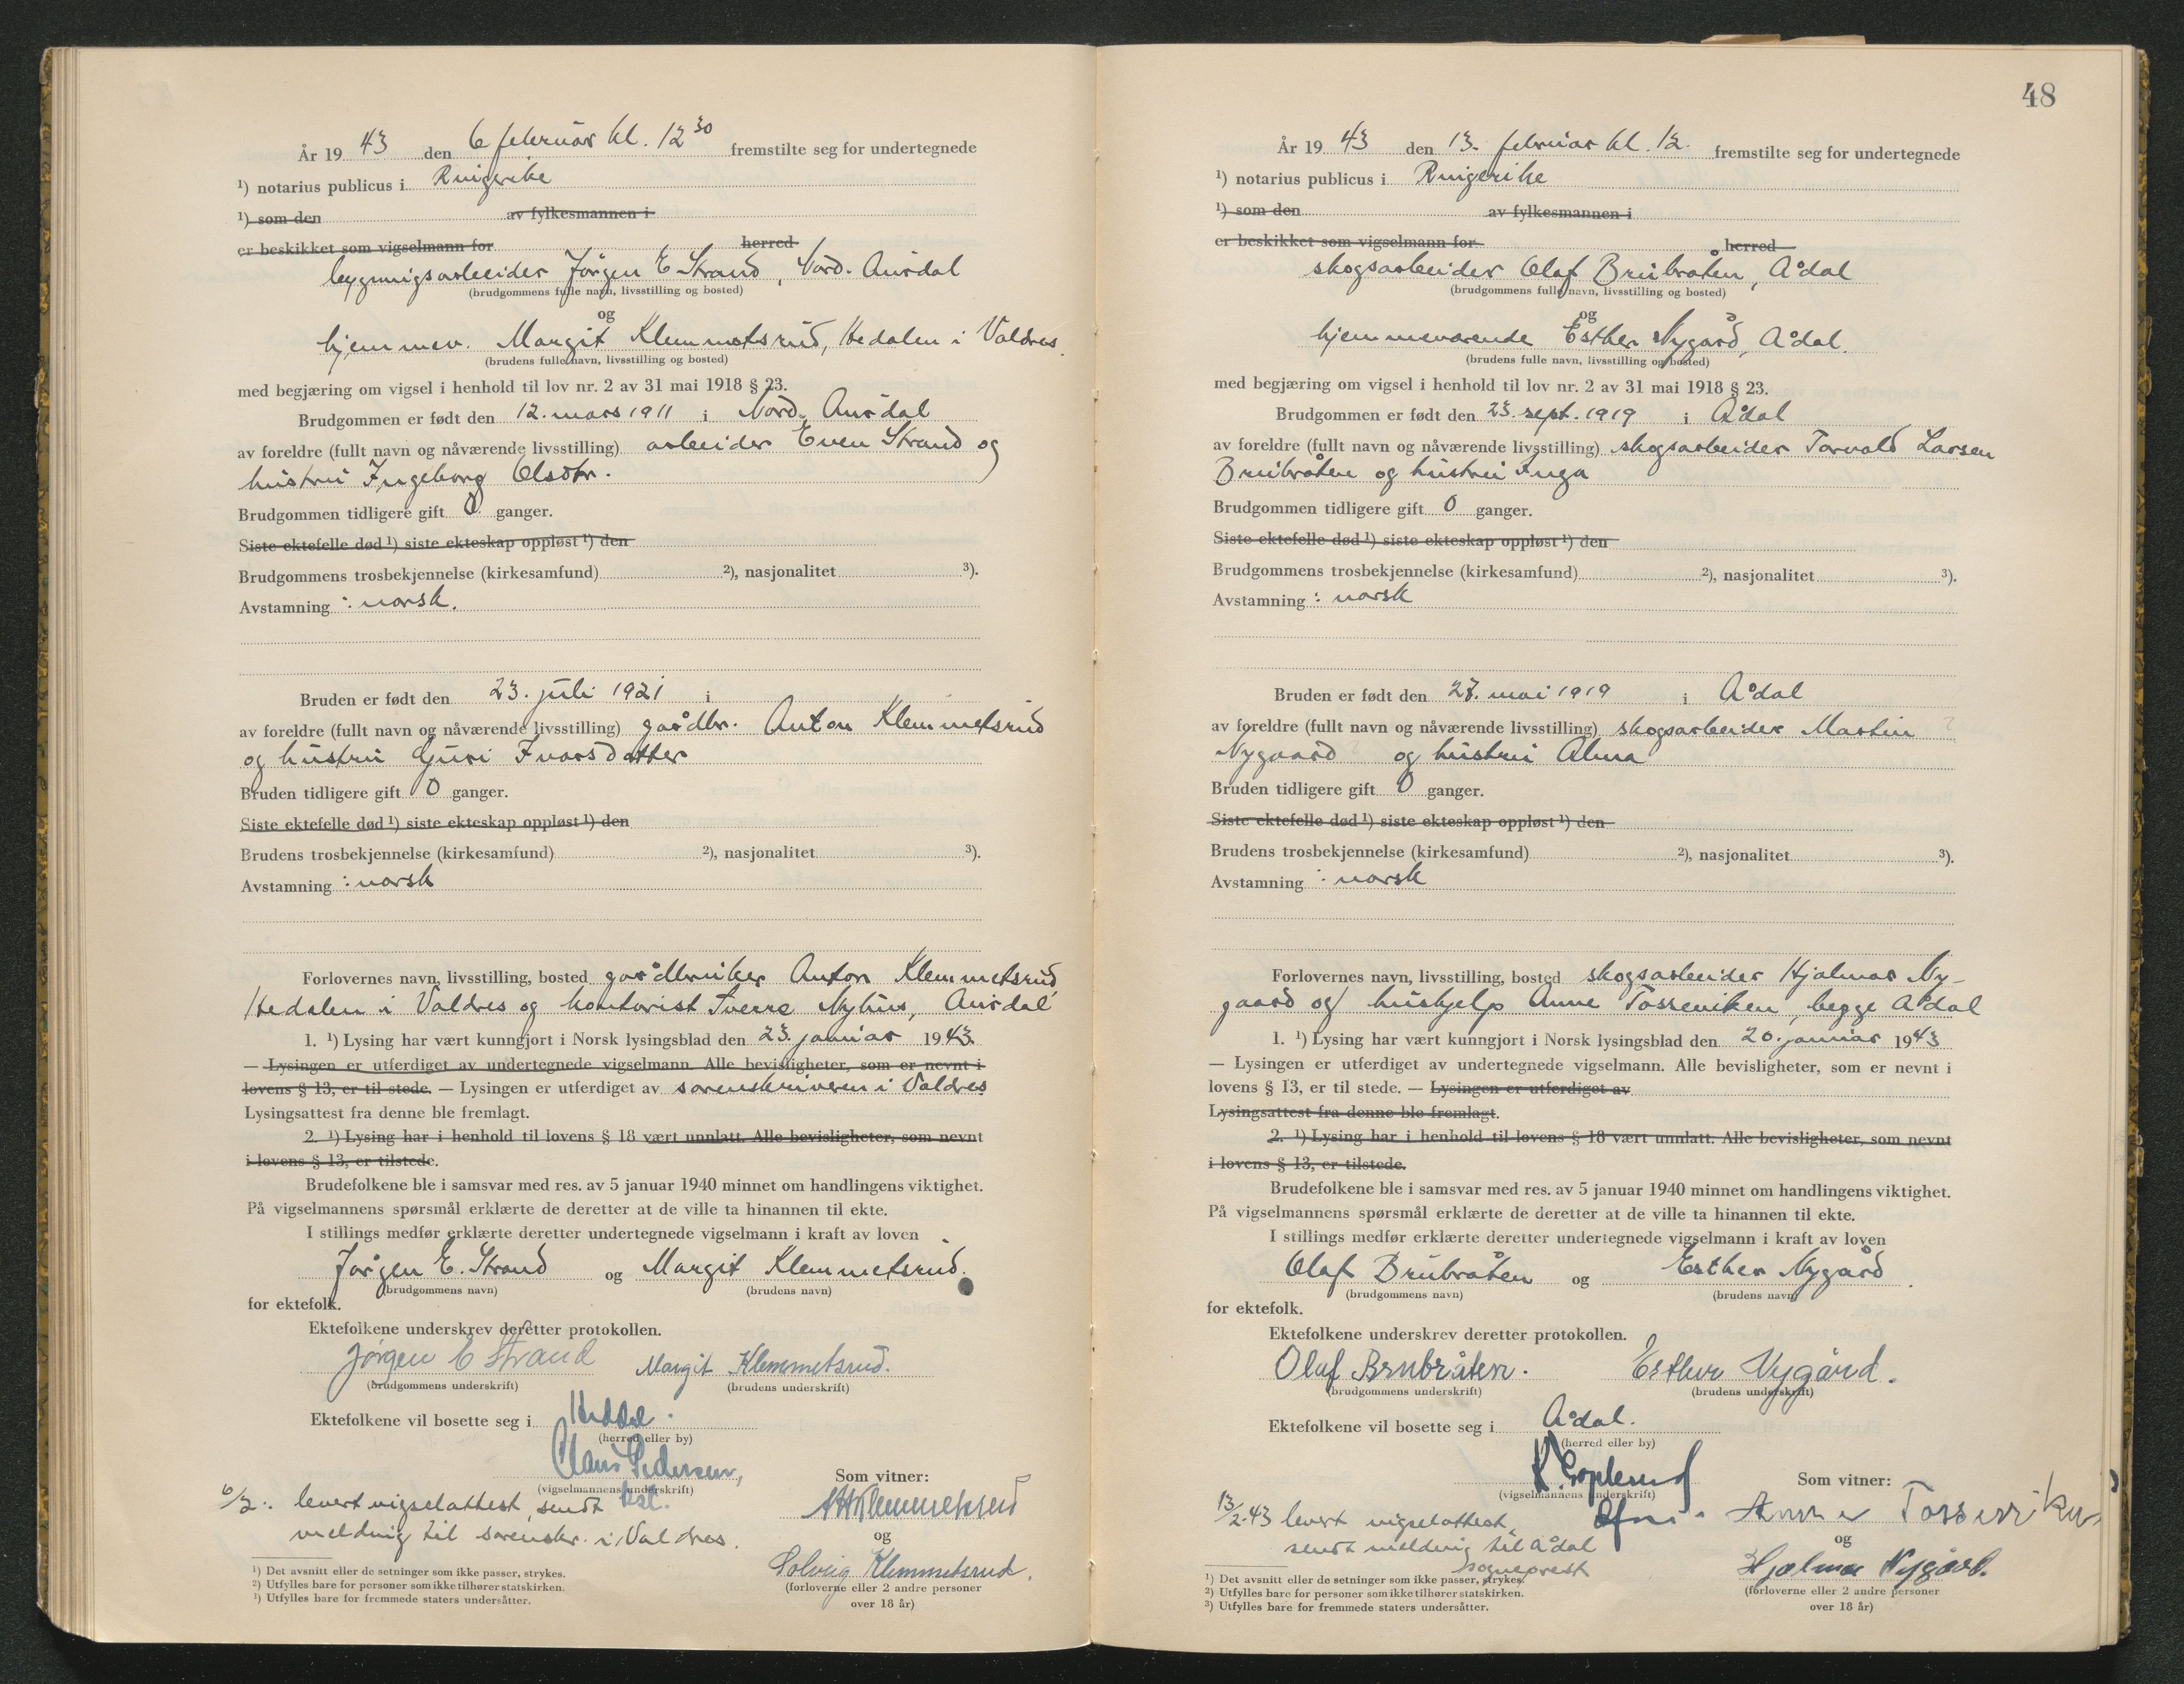 År 19 43 den 6 februar kl. 12 30 fremstilte seg for undertegnede
1) notarius publicus i Ringerike
1) som den av fylkesmannen i
er beskikket som vigselmann for herred
bygningsarbeider Jørgen E Strand, Nord-Aurdal
(brudgommens fulle navn, livsstilling og bosted)
og
hjemmev. Margit Klemmetsrud, Hedalen i Valdres.
(brudens fulle navn, livsstilling og bosted)
med begjæring om vigsel i henhold til lov nr. 2 av 31 mai 1918 § 23.
Brudgommen er født den 12. mars 1911 i Nord-Aurdal
av foreldre (fullt navn og nåværende livsstilling) arbeider Even Strand og
hustru Ingeborg Olsdtr.
Brudgommen tidligere gift 0 ganger.
Siste ektefelle død 1) siste ekteskap oppløst 1) den
Brudgommens trosbekjennelse (kirkesamfund) 2), nasjonalitet 3).
Avstamning : norsk.
Bruden er født den 23. juli 1921 i
av foreldre (fullt navn og nåværende livsstilling) gårdbr. Anton Klemmetsrud
og hustru Guri Ivarsdatter
Bruden tidligere gift 0 ganger.
Siste ektefelle død 1) siste ekteskap oppløst 1) den
Brudens trosbekjennelse (kirkesamfund) 2), nasjonalitet 3).
Avstamning : norsk
Forlovernes navn, livsstilling, bosted gårdbruker Anton Klemmetsrud,
Hedalen i Valdres og kontorist Sverre Nyhus, Aurdal
1. 1) Lysing har vært kunngjort i Norsk lysingsblad den 23. januar 1943.
— Lysingen er utferdiget av undertegnede vigselmann. Alle bevisligheter, som er nevnt i
lovens § 13, er til stede. — Lysingen er utferdiget av sorenskriveren i Valdres
Lysingsattest fra denne ble fremlagt.
2. 1) Lysing har i henhold til lovens § 18 vært unnlatt. Alle bevisligheter, som nevnt
i lovens § 13, er tilstede.
Brudefolkene ble i samsvar med res. av 5 januar 1940 minnet om handlingens viktighet.
På vigselmannens spørsmål erklærte de deretter at de ville ta hinannen til ekte.
I stillings medfør erklærte deretter undertegnede vigselmann i kraft av loven
Jørgen E. Strand og Margit Klemmetsrud.
(brudgommens navn) (brudens navn)
for ektefolk.
Ektefolkene underskrev deretter protokollen.
Jørgen E Strand Margit Klemmetsrud.
(brudgommens underskrift) (brudens underskrift)
Ektefolkene vil bosette seg i
(herred eller by)
Claus Pedersen,
(vigselmannens underskrift) Som vitner:
6/2: levert vigselattest, sendt
melding til sorenskr. i Valdres.
Klemmetsrud
og
Solveig Klemmetsrud.
(forloverne eller 2 andre personer
over 18 år)
1) Det avsnitt eller de setninger som ikke passer, strykes.
2) Utfylles bare for personer som ikke tilhører statskirken.
3) Utfylles bare for fremmede staters undersåtter.
48
År 19 43 den 13. februar kl. 12. fremstilte seg for undertegnede
1) notarius publicus i Ringerike
1) som den av fylkesmannen i
er beskikket som vigselmann for herred
skogsarbeider Olaf Brubråten, Ådal
(brudgommens fulle navn, livsstilling og bosted)
og
hjemmeværende Esther Nygård, Ådal.
(brudens fulle navn, livsstilling og bosted)
med begjæring om vigsel i henhold til lov nr. 2 av 31 mai 1918 § 23.
Brudgommen er født den 23. sept. 1919 i Ådal
av foreldre (fullt navn og nåværende livsstilling) skogsarbeider Torvald Larsen
Brubråten og hustru Inga
Brudgommen tidligere gift 0 ganger.
Siste ektefelle død 1) siste ekteskap oppløst 1) den
Brudgommens trosbekjennelse (kirkesamfund) 2), nasjonalitet 3).
Avstamning : norsk
Bruden er født den 27. mai 1919 i Ådal
av foreldre (fullt navn og nåværende livsstilling) skogsarbeider Martin
Nygaard og hustru Alma
Bruden tidligere gift 0 ganger.
Siste ektefelle død 1) siste ekteskap oppløst 1) den
Brudens trosbekjennelse (kirkesamfund) 2), nasjonalitet 3).
Avstamning : norsk
Forlovernes navn, livsstilling, bosted skogsarbeider Hjalmar Ny-
gaard og hushjelp Anne Tosseviken, begge Ådal
1. 1) Lysing har vært kunngjort i Norsk lysingsblad den 20. januar 1943
— Lysingen er utferdiget av undertegnede vigselmann. Alle bevisligheter, som er nevnt i
lovens § 13, er til stede. — Lysingen er utferdiget av
Lysingsattest fra denne ble fremlagt.
2. 1) Lysing har i henhold til lovens § 18 vært unnlatt. Alle bevisligheter, som nevnt
i lovens § 13, er tilstede.
Brudefolkene ble i samsvar med res. av 5 januar 1940 minnet om handlingens viktighet.
På vigselmannens spørsmål erklærte de deretter at de ville ta hinannen til ekte.
I stillings medfør erklærte deretter undertegnede vigselmann i kraft av loven
Olaf Brubråten og Esther Nygård.
(brudgommens navn) (brudens navn)
for ektefolk.
Ektefolkene underskrev deretter protokollen.
Olaf Brubråten. Esther Nygård.
(brudgommens underskrift) (brudens underskrift)
Ektefolkene vil bosette seg i Ådal.
(herred eller by)
(vigselmannens underskrift) Som vitner:
13/2-43 levert vigselattest,
sendt melding til Ådal
sogneprest
Anne Tosseviken
og
Hjalmar Nygård.
(forloverne eller 2 andre personer
over 18 år)
1) Det avsnitt eller de setninger som ikke passer, strykes.
2) Utfylles bare for personer som ikke tilhører statskirken.
3) Utfylles bare for fremmede staters undersåtter.